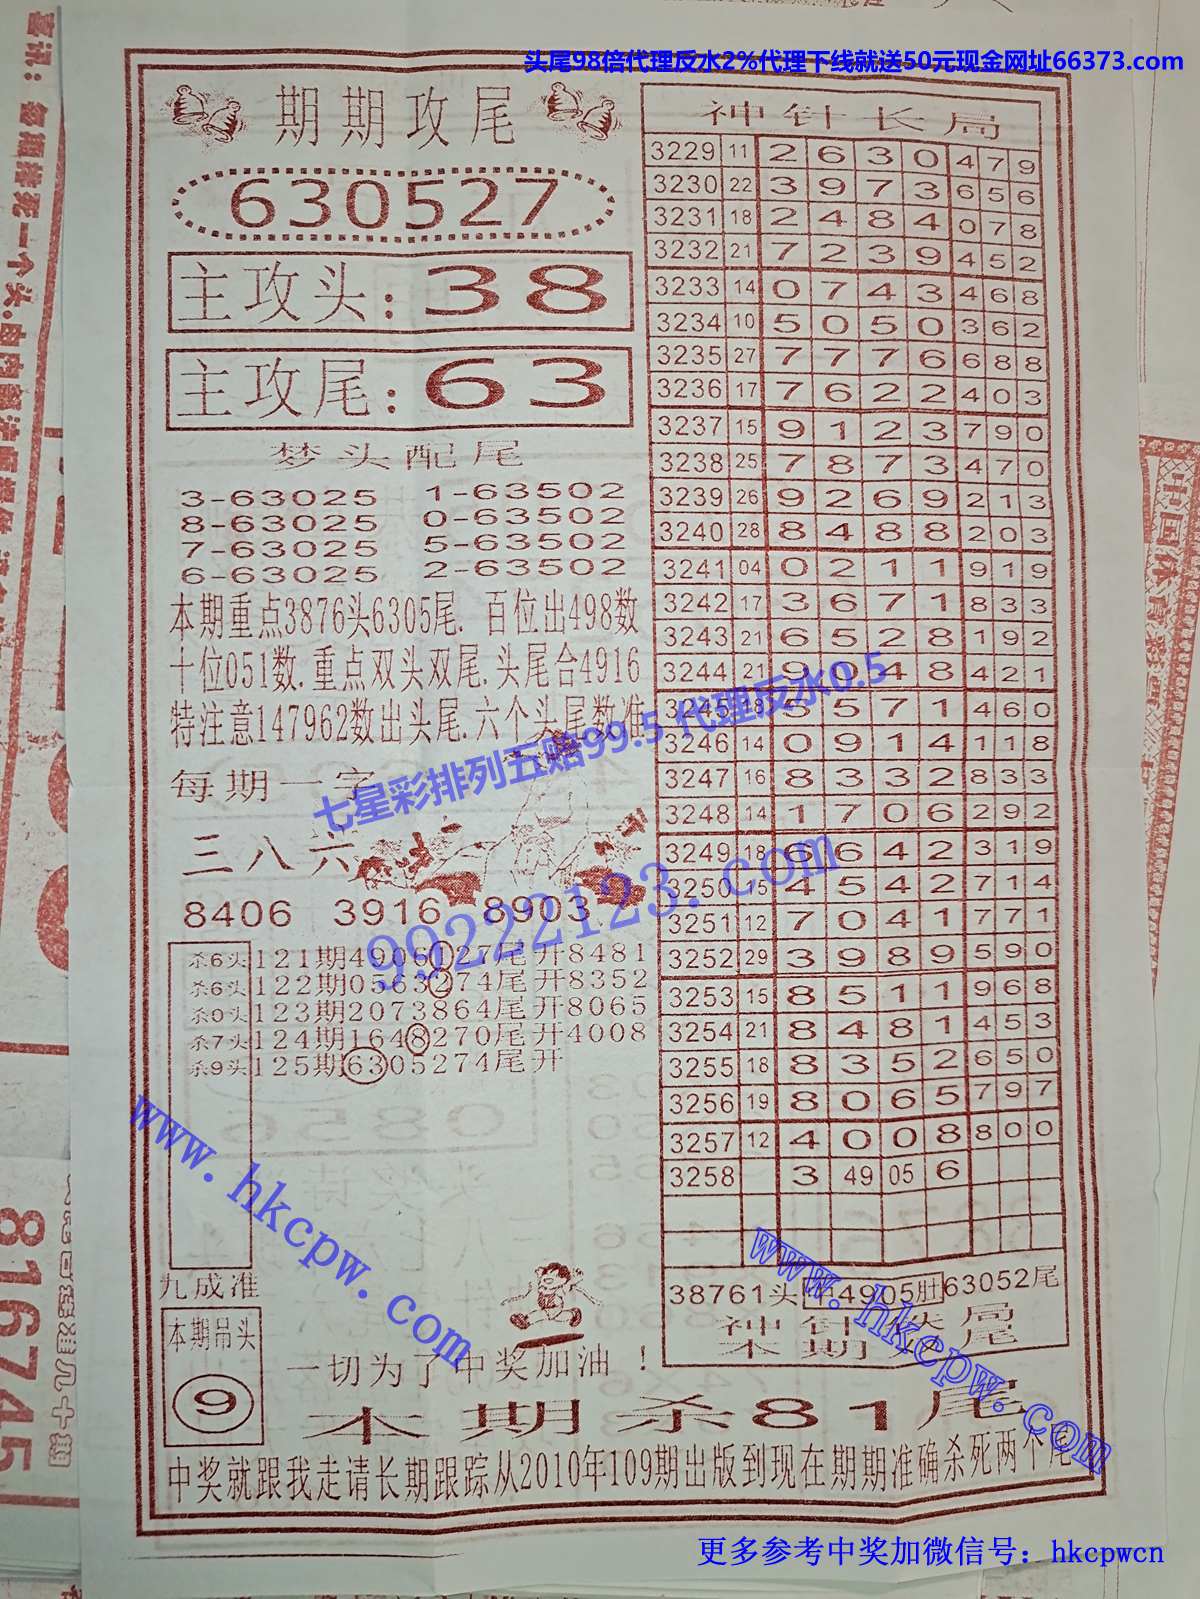 头尾98倍代理反水2%代理下线就送50元现金网址66373.com
期期攻尾
630527
主攻头:38
主攻尾:63
梦头配尾
3-63025 1-63502
8-63025 0-63502
7-63025 5-63502
6-63025 2-63502
本期重点3876头6305尾. 百位出498数
十位051数.重点双头双尾.头尾合4916
特注意147962数出头尾.六个头尾数准
每期一字
三八六
8406 3916 8903
杀6头121期4906127尾开8481
杀6头122期0563274尾开8352
杀0头123期2073864尾开8065
杀7头124期1648270尾开4008
杀9头125期6305274尾开
九成准
本期吊头
9
一切为了中奖加油!
神针长局
3229 11 2 6 3 0 4 7 9
3230 22 3 9 7 3 6 5 6
3231 18 2 4 8 4 0 7 8
3232 21 7 2 3 9 4 5 2
3233 14 0 7 4 3 4 6 8
3234 10 5 0 5 0 3 6 2
3235 27 7 7 7 6 6 8 8
3236 17 7 6 2 2 4 0 3
3237 15 9 1 2 3 7 9 0
3238 25 7 8 7 3 4 7 0
3239 26 9 2 6 9 2 1 3
3240 28 8 4 8 8 2 0 3
3241 04 0 2 1 1 9 1 9
3242 17 3 6 7 1 8 3 3
3243 21 6 5 2 8 1 9 2
3244 21 9 0 4 8 4 2 1
3245 18 5 5 7 1 4 6 0
3246 14 0 9 1 4 1 1 8
3247 16 8 3 3 2 8 3 3
3248 14 1 7 0 6 2 9 2
3249 18 6 6 4 2 3 1 9
3250 15 4 5 4 2 7 1 4
3251 12 7 0 4 1 7 7 1
3252 29 3 9 8 9 5 9 0
3253 15 8 5 1 1 9 6 8
3254 21 8 4 8 1 4 5 3
3255 18 8 3 5 2 6 5 0
3256 19 8 0 6 5 7 9 7
3257 12 4 0 0 8 8 0 0
3258 3 49 05 6
38761头 中4905肚 63052尾
神针 局
本期 尾
本期杀81尾
中奖就跟我走请长期跟踪从2010年109期出版到现在期期准确杀死两个尾
七星彩排列五赔99.5 代理反水0.5
90222123.com
www.hkcpw.com
www.hkcpw.com
更多参考中奖加微信号：hkcpwcn
816745
中国体育彩